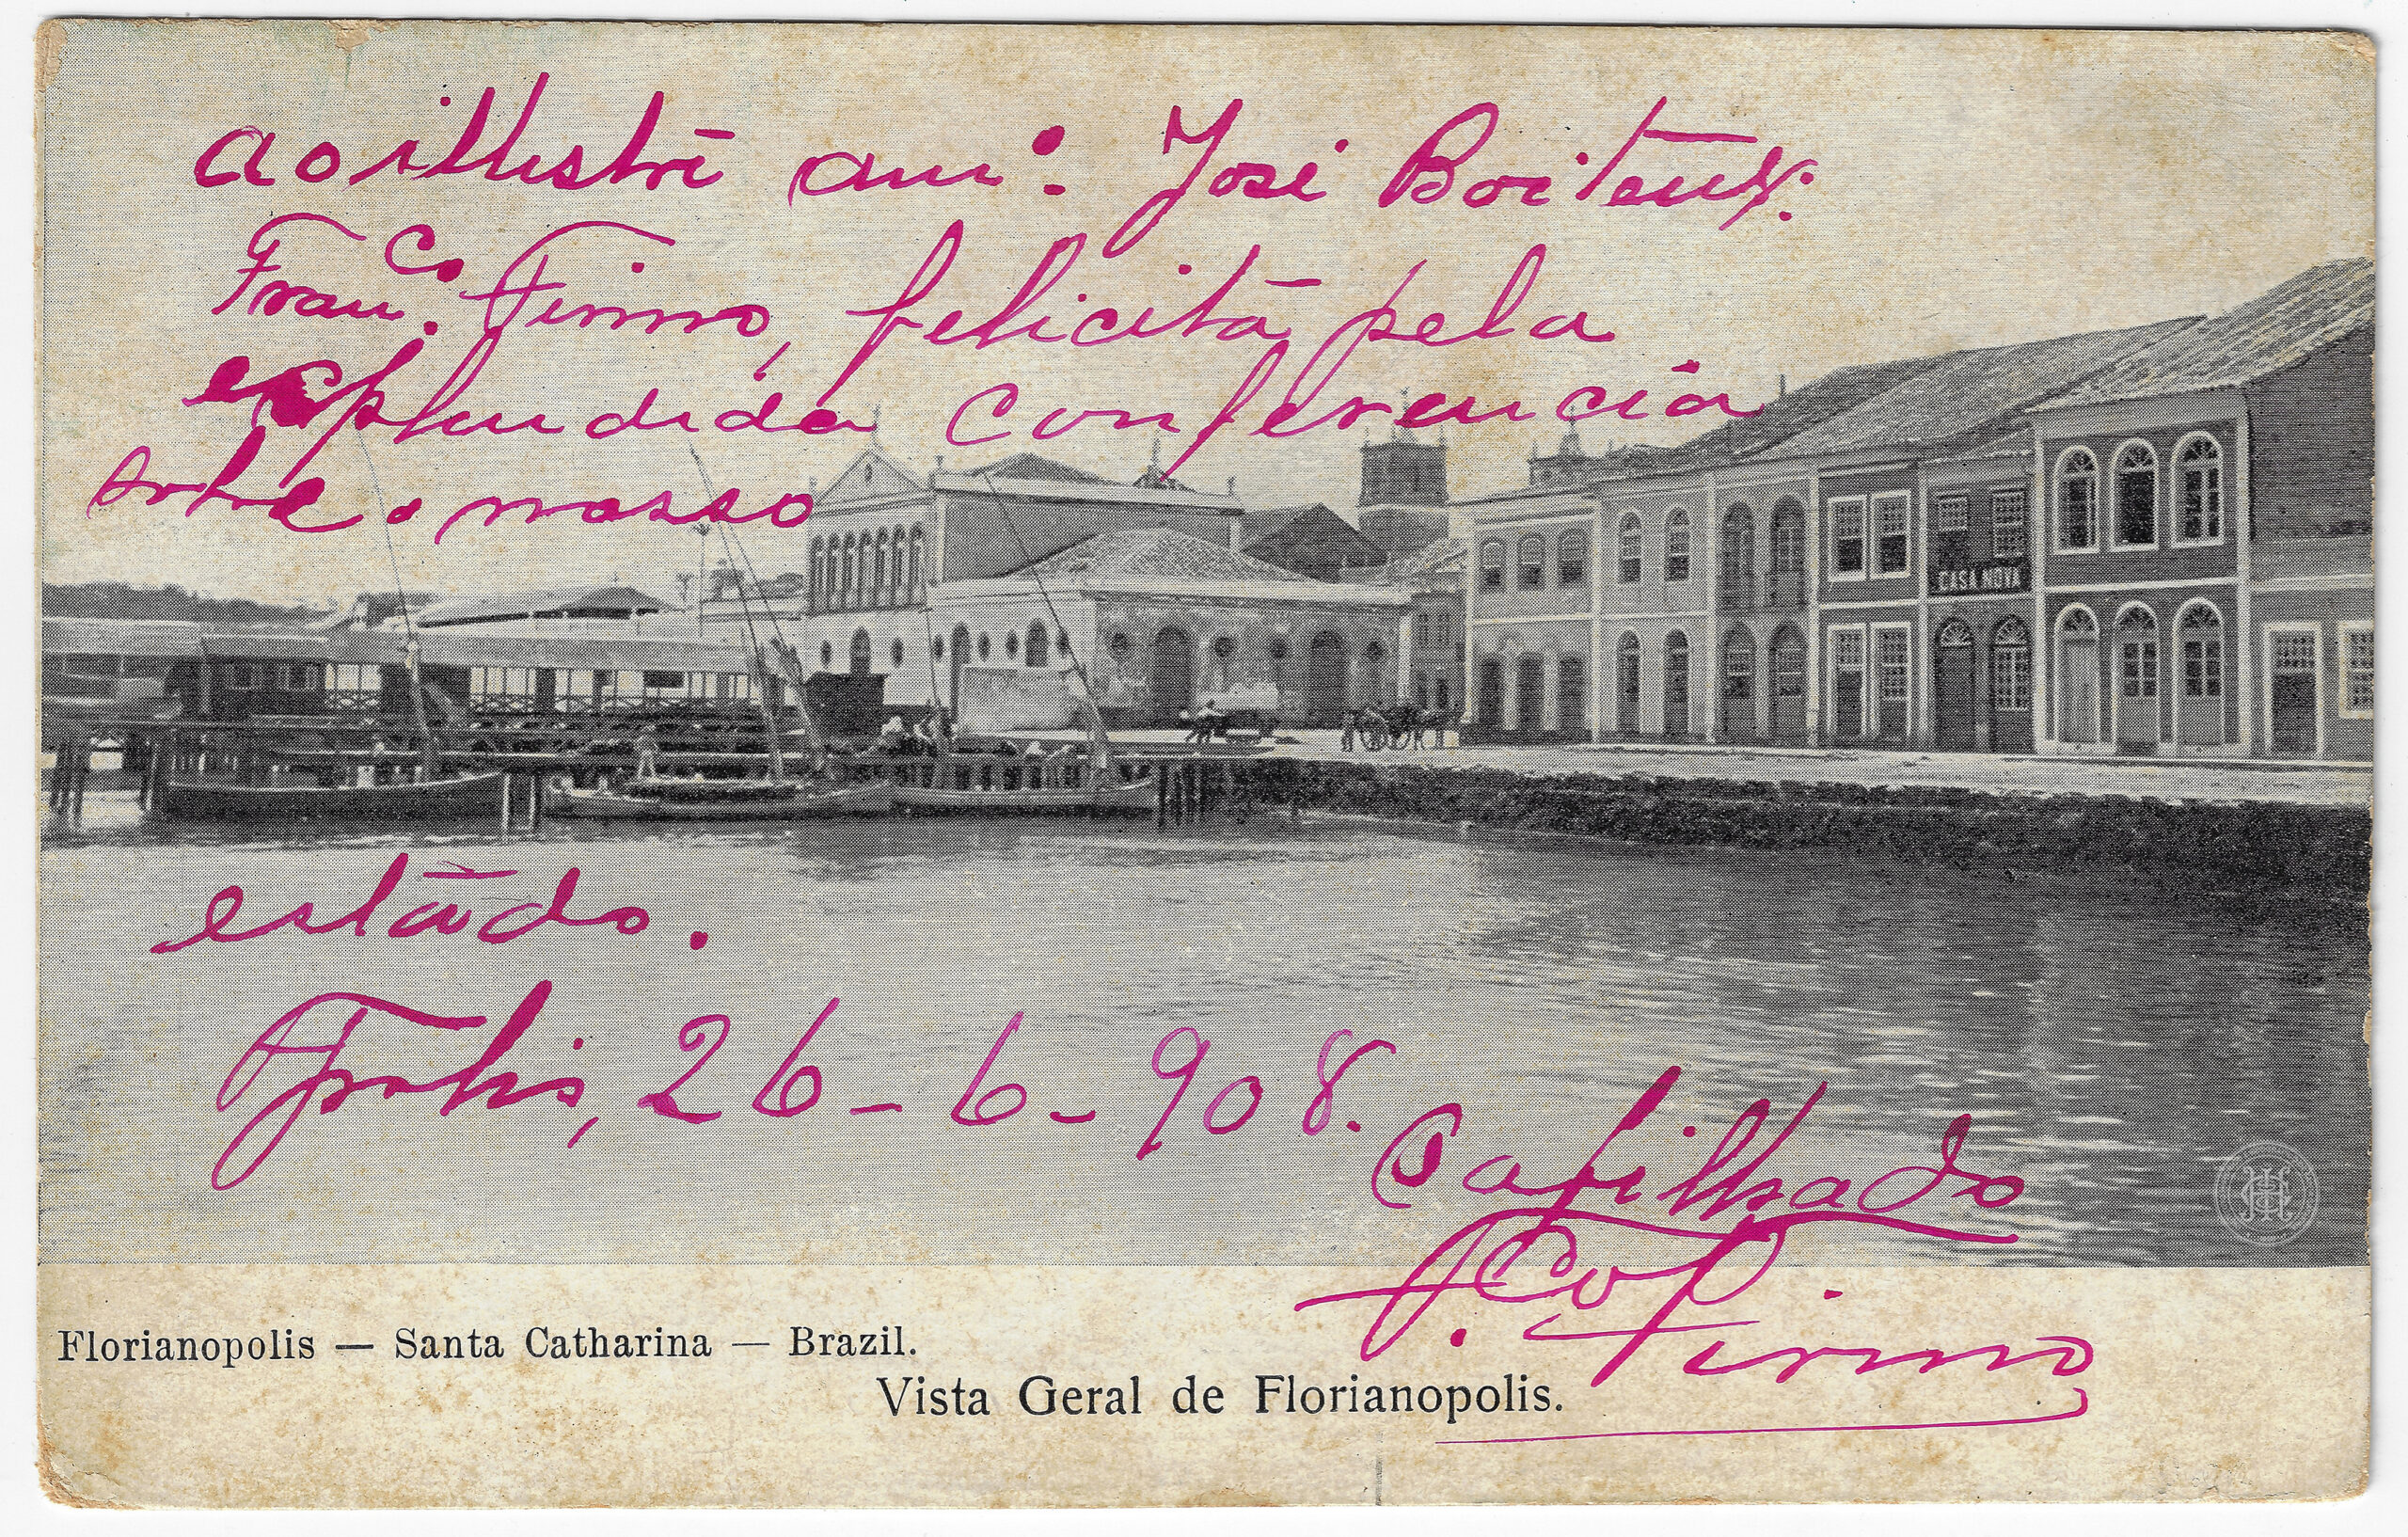 Ao illustre amº. José Boiteux.
Franco. Firmo, felicita pela
explendida conferencia
sobre o nosso
CASA NOVA
estado.
Fpolis, 26-6-908.
afilhado
F. Co
Firmo
Florianopolis — Santa Catharina — Brazil.
Vista Geral de Florianopolis.